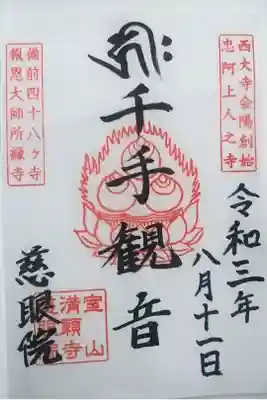 西大寺会陽創始
忠阿上人之寺
令和三年
八月十一日
千手観音
備前四十八ヶ寺
報恩大師所縁寺
満願寺
慈眼院